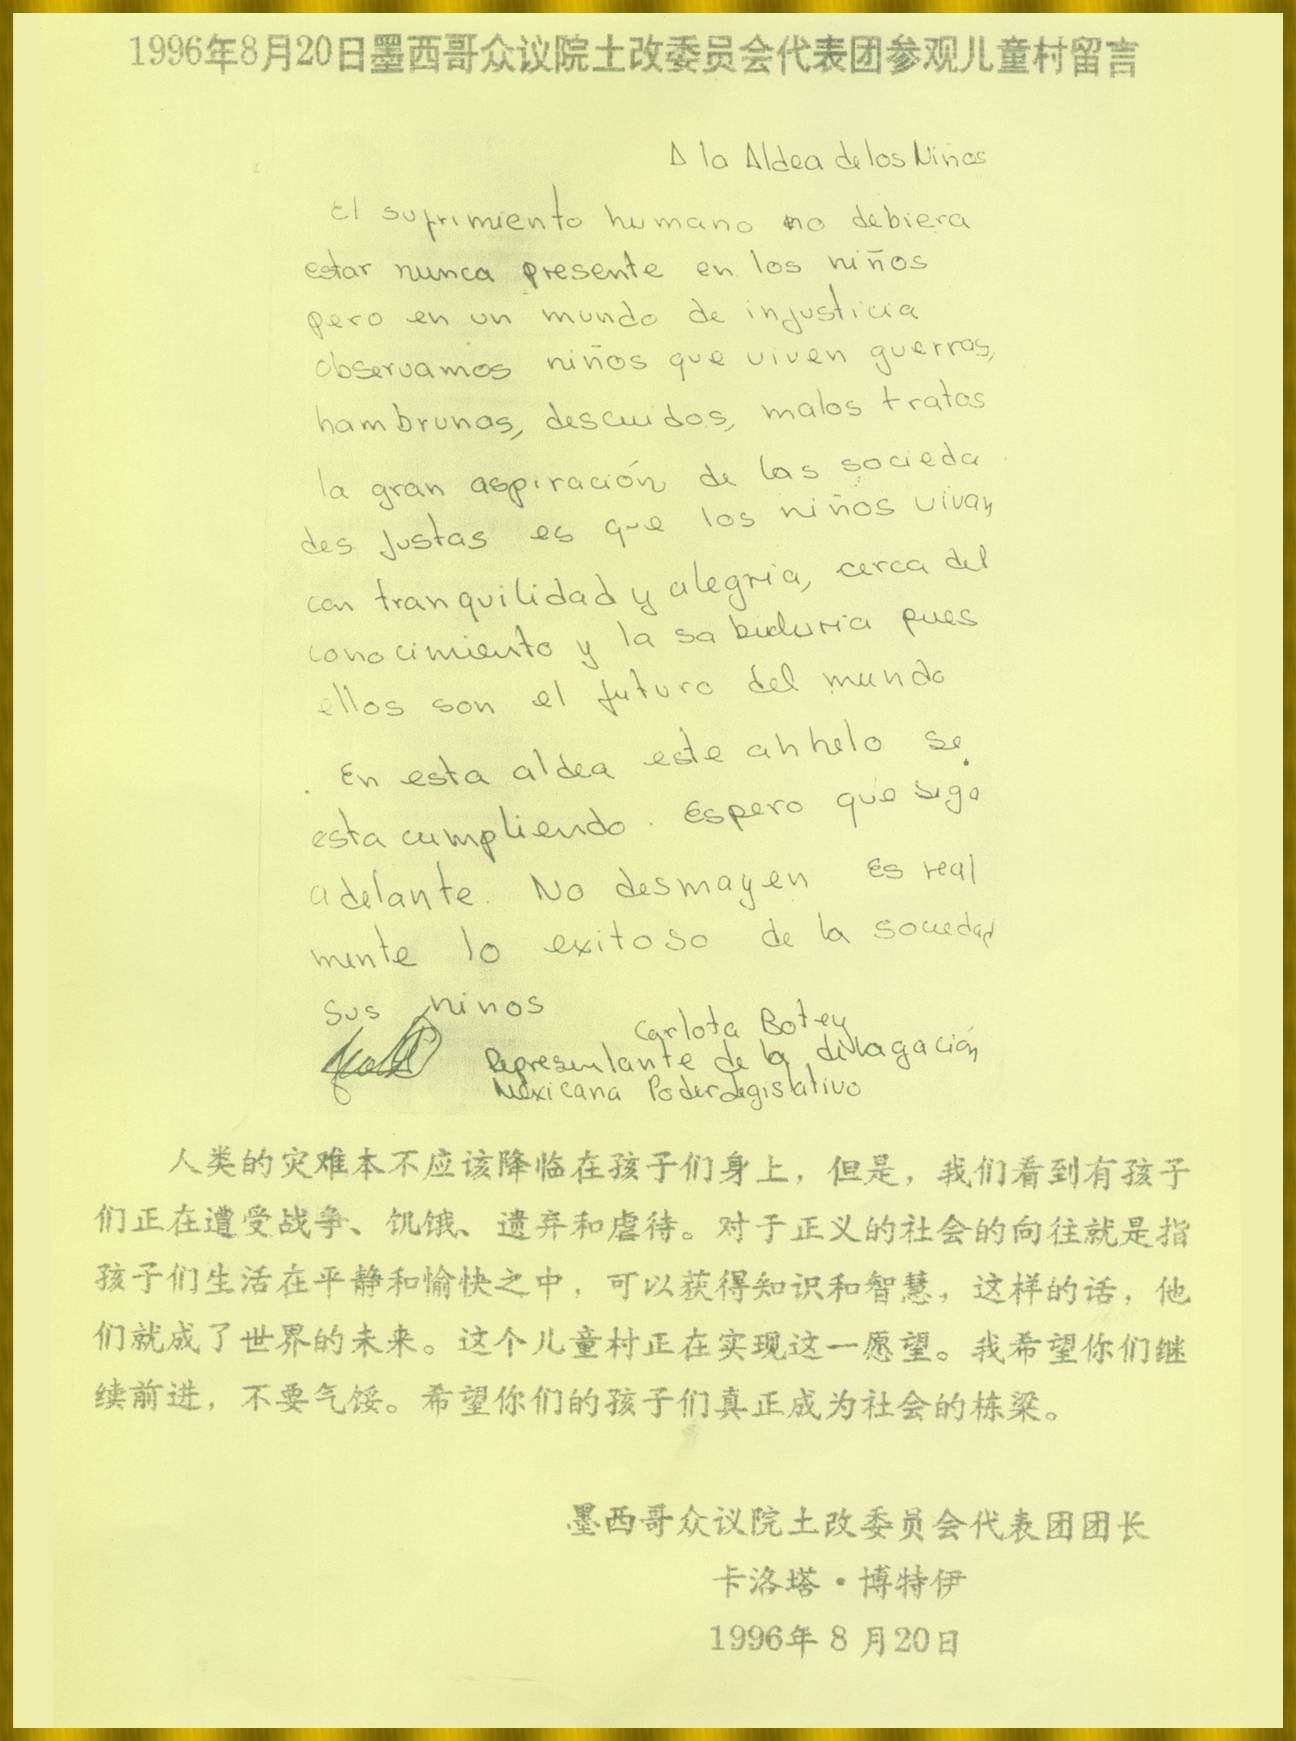 1996年8月20日墨西哥众议院土改委员会代表团参观儿童村留言
A la Aldea de los Niños
El sufrimiento humano no debiera
estar nunca presente en los niños
pero en un mundo de injusticia
observamos niños que viven guerras,
hambrunas, descuidos, malos tratos
la gran aspiración de las socieda
des justas es que los niños vivan
con tranquilidad y alegria, cerca del
conocimiento y la sabiduria pues
ellos son el futuro del mundo
En esta aldea este anhelo se
esta cumpliendo. Espero que siga
adelante. No desmayen Es real
mente lo exitoso de la sociedad
sus ninos
Carlota Botey
Representante de la
Mexicana Poder Legislativo
人类的灾难本不应该降临在孩子们身上，但是，我们看到有孩子
们正在遭受战争、饥饿、遗弃和虐待。对于正义的社会的向往就是指
孩子们生活在平静和愉快之中，可以获得知识和智慧，这样的话，他
们就成了世界的未来。这个儿童村正在实现这一愿望。我希望你们继
续前进，不要气馁。希望你们的孩子们真正成为社会的栋梁。
墨西哥众议院土改委员会代表团团长
卡洛塔·博特伊
1996年8月20日